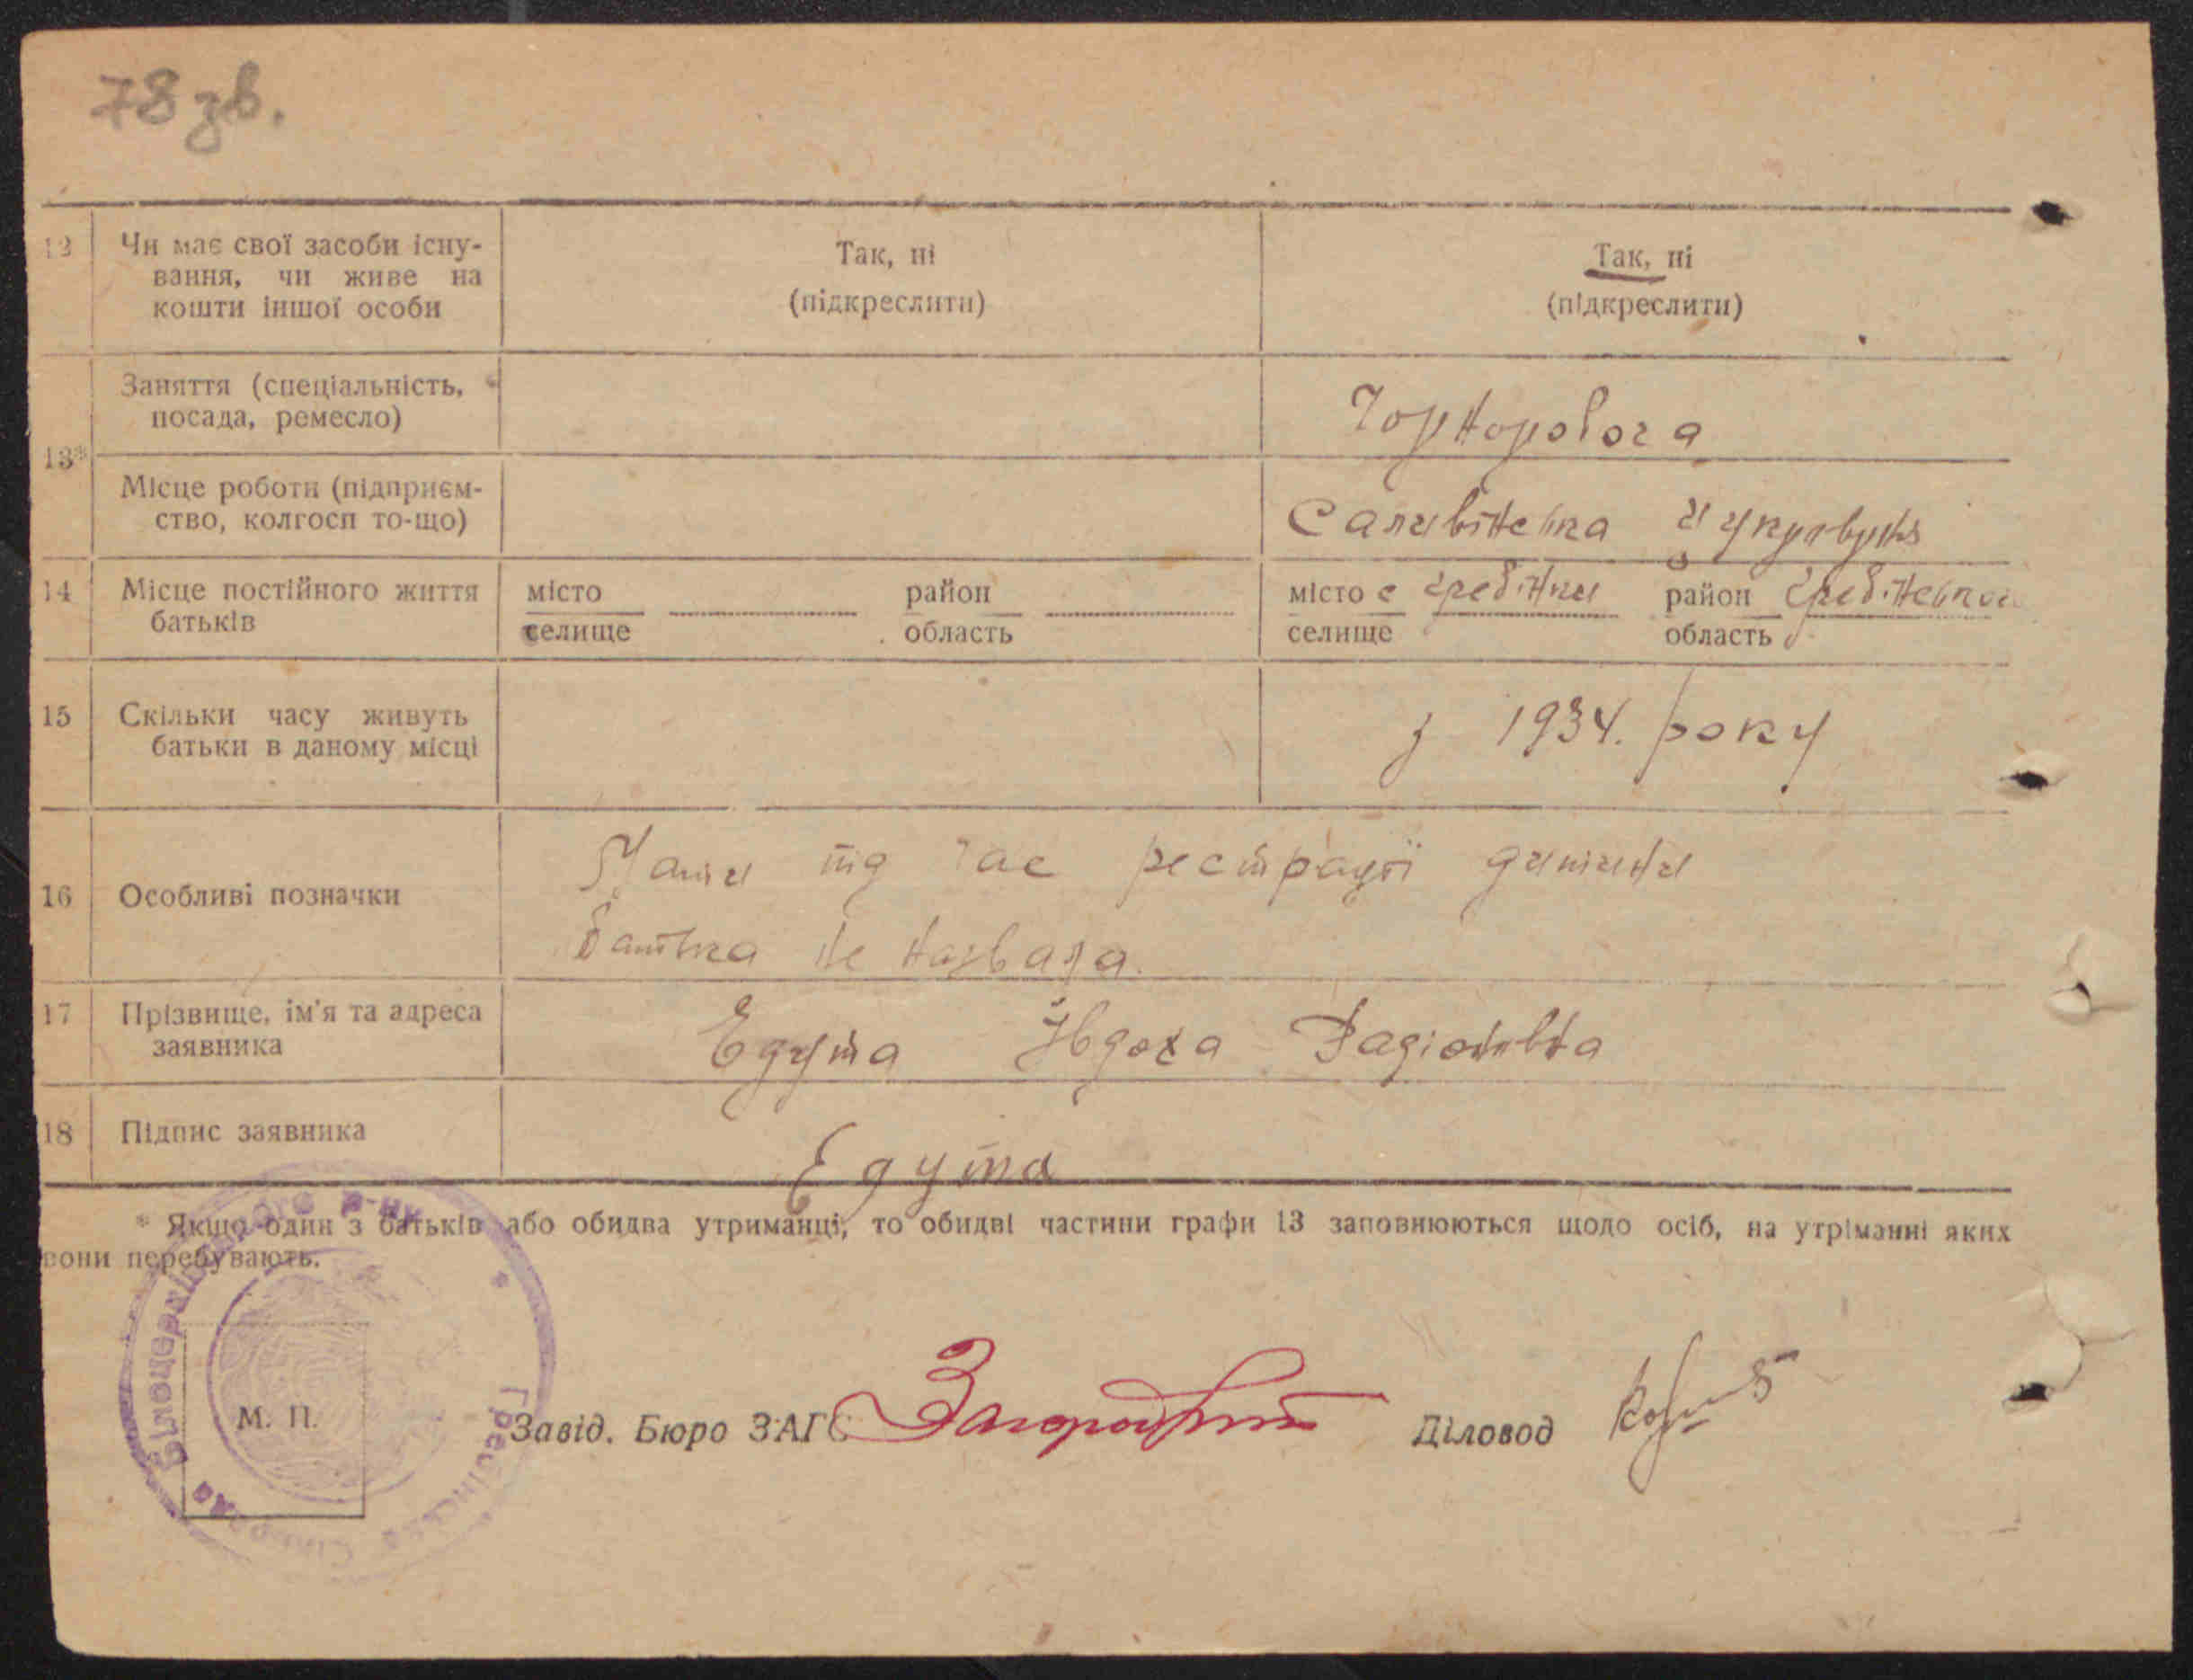 78 зв.
12 Чи має свої засоби існу-
вання, чи живе на
кошти іншої особи
Так, ні
(підкреслити)
Так, ні
(підкреслити)
13*
Заняття (спеціальність,
посада, ремесло)
Чорноробоча
Місце роботи (підприєм-
ство, колгосп то-що)
14 Місце постійного життя
батьків
місто
селище
район
область
місто с Гребінки
селище
район
область
15 Скільки часу живуть
батьки в даному місці
з 1934. року
16 Особливі позначки
Мати під час реєстрації дитини
батька не назвала.
17 Прізвище, ім'я та адреса
заявника
18 Підпис заявника
* Якщо один з батьків або обидва утриманці, то обидві частини графи 13 заповнюються щодо осіб, на утріманні яких
вони перебувають.
Білоцерківського р-ну
Гребінська Сільрада
М. П.
Завід. Бюро ЗАГС
Діловод